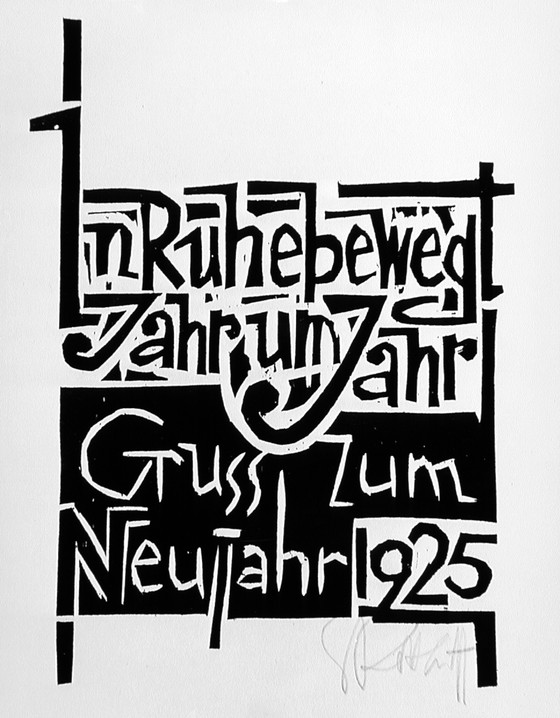 In Ruhe bewegt
Jahr um Jahr
Gruss zum
Neujahr 1925